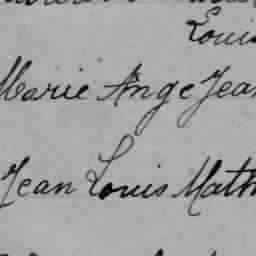 Louis
Marie Ange Jean
Jean Louis Math